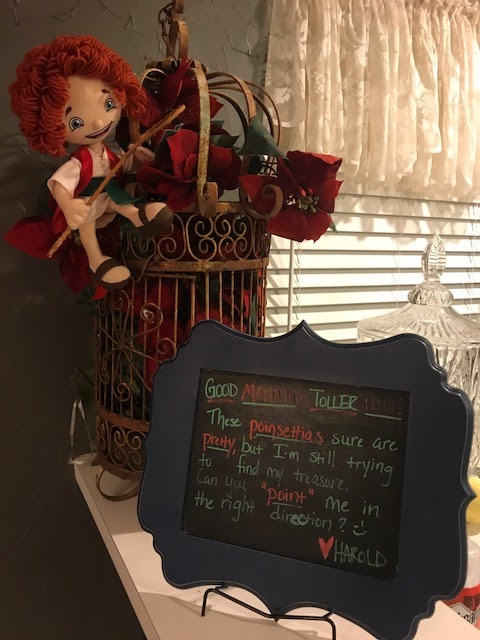 GOOD MORNING TOLLER
These poinsettias sure are
pretty, but I'm still trying
to find my treasure.
Can you "point" me in
the right direction? :)
♥ HAROLD